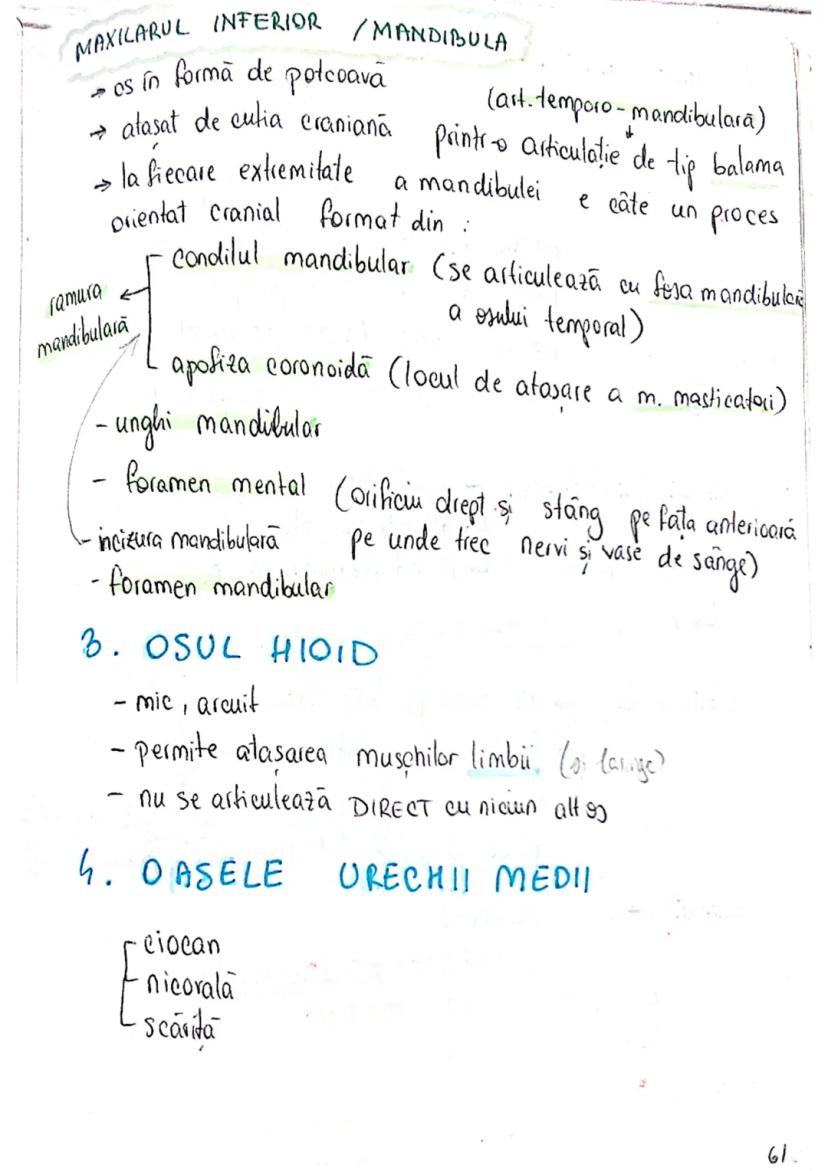 MAXILARUL INFERIOR / MANDIBULA
→ os în formă de potcoavă
(art. temporo-mandibulară)
→ atașat de cutia craniană printr-o articulație de tip balama
→ la fiecare extremitate a mandibulei e câte un proces
orientat cranial format din :
condilul mandibular (se articulează cu fosa mandibulară
a osului temporal)
ramura
mandibulară
apofiza coronoidă (locul de atașare a m. masticatori)
- unghi mandibular
- foramen mental (orificiu drept și stâng pe fața anterioară
pe unde trec nervi și vase de sânge)
- incizura mandibulară
- foramen mandibular
3. OSUL HIOID
- mic, arcuit
- permite atașarea mușchilor limbii (și laringe)
- nu se articulează DIRECT cu niciun alt os
4. OASELE URECHII MEDII
ciocan
nicovală
scăriță
61.